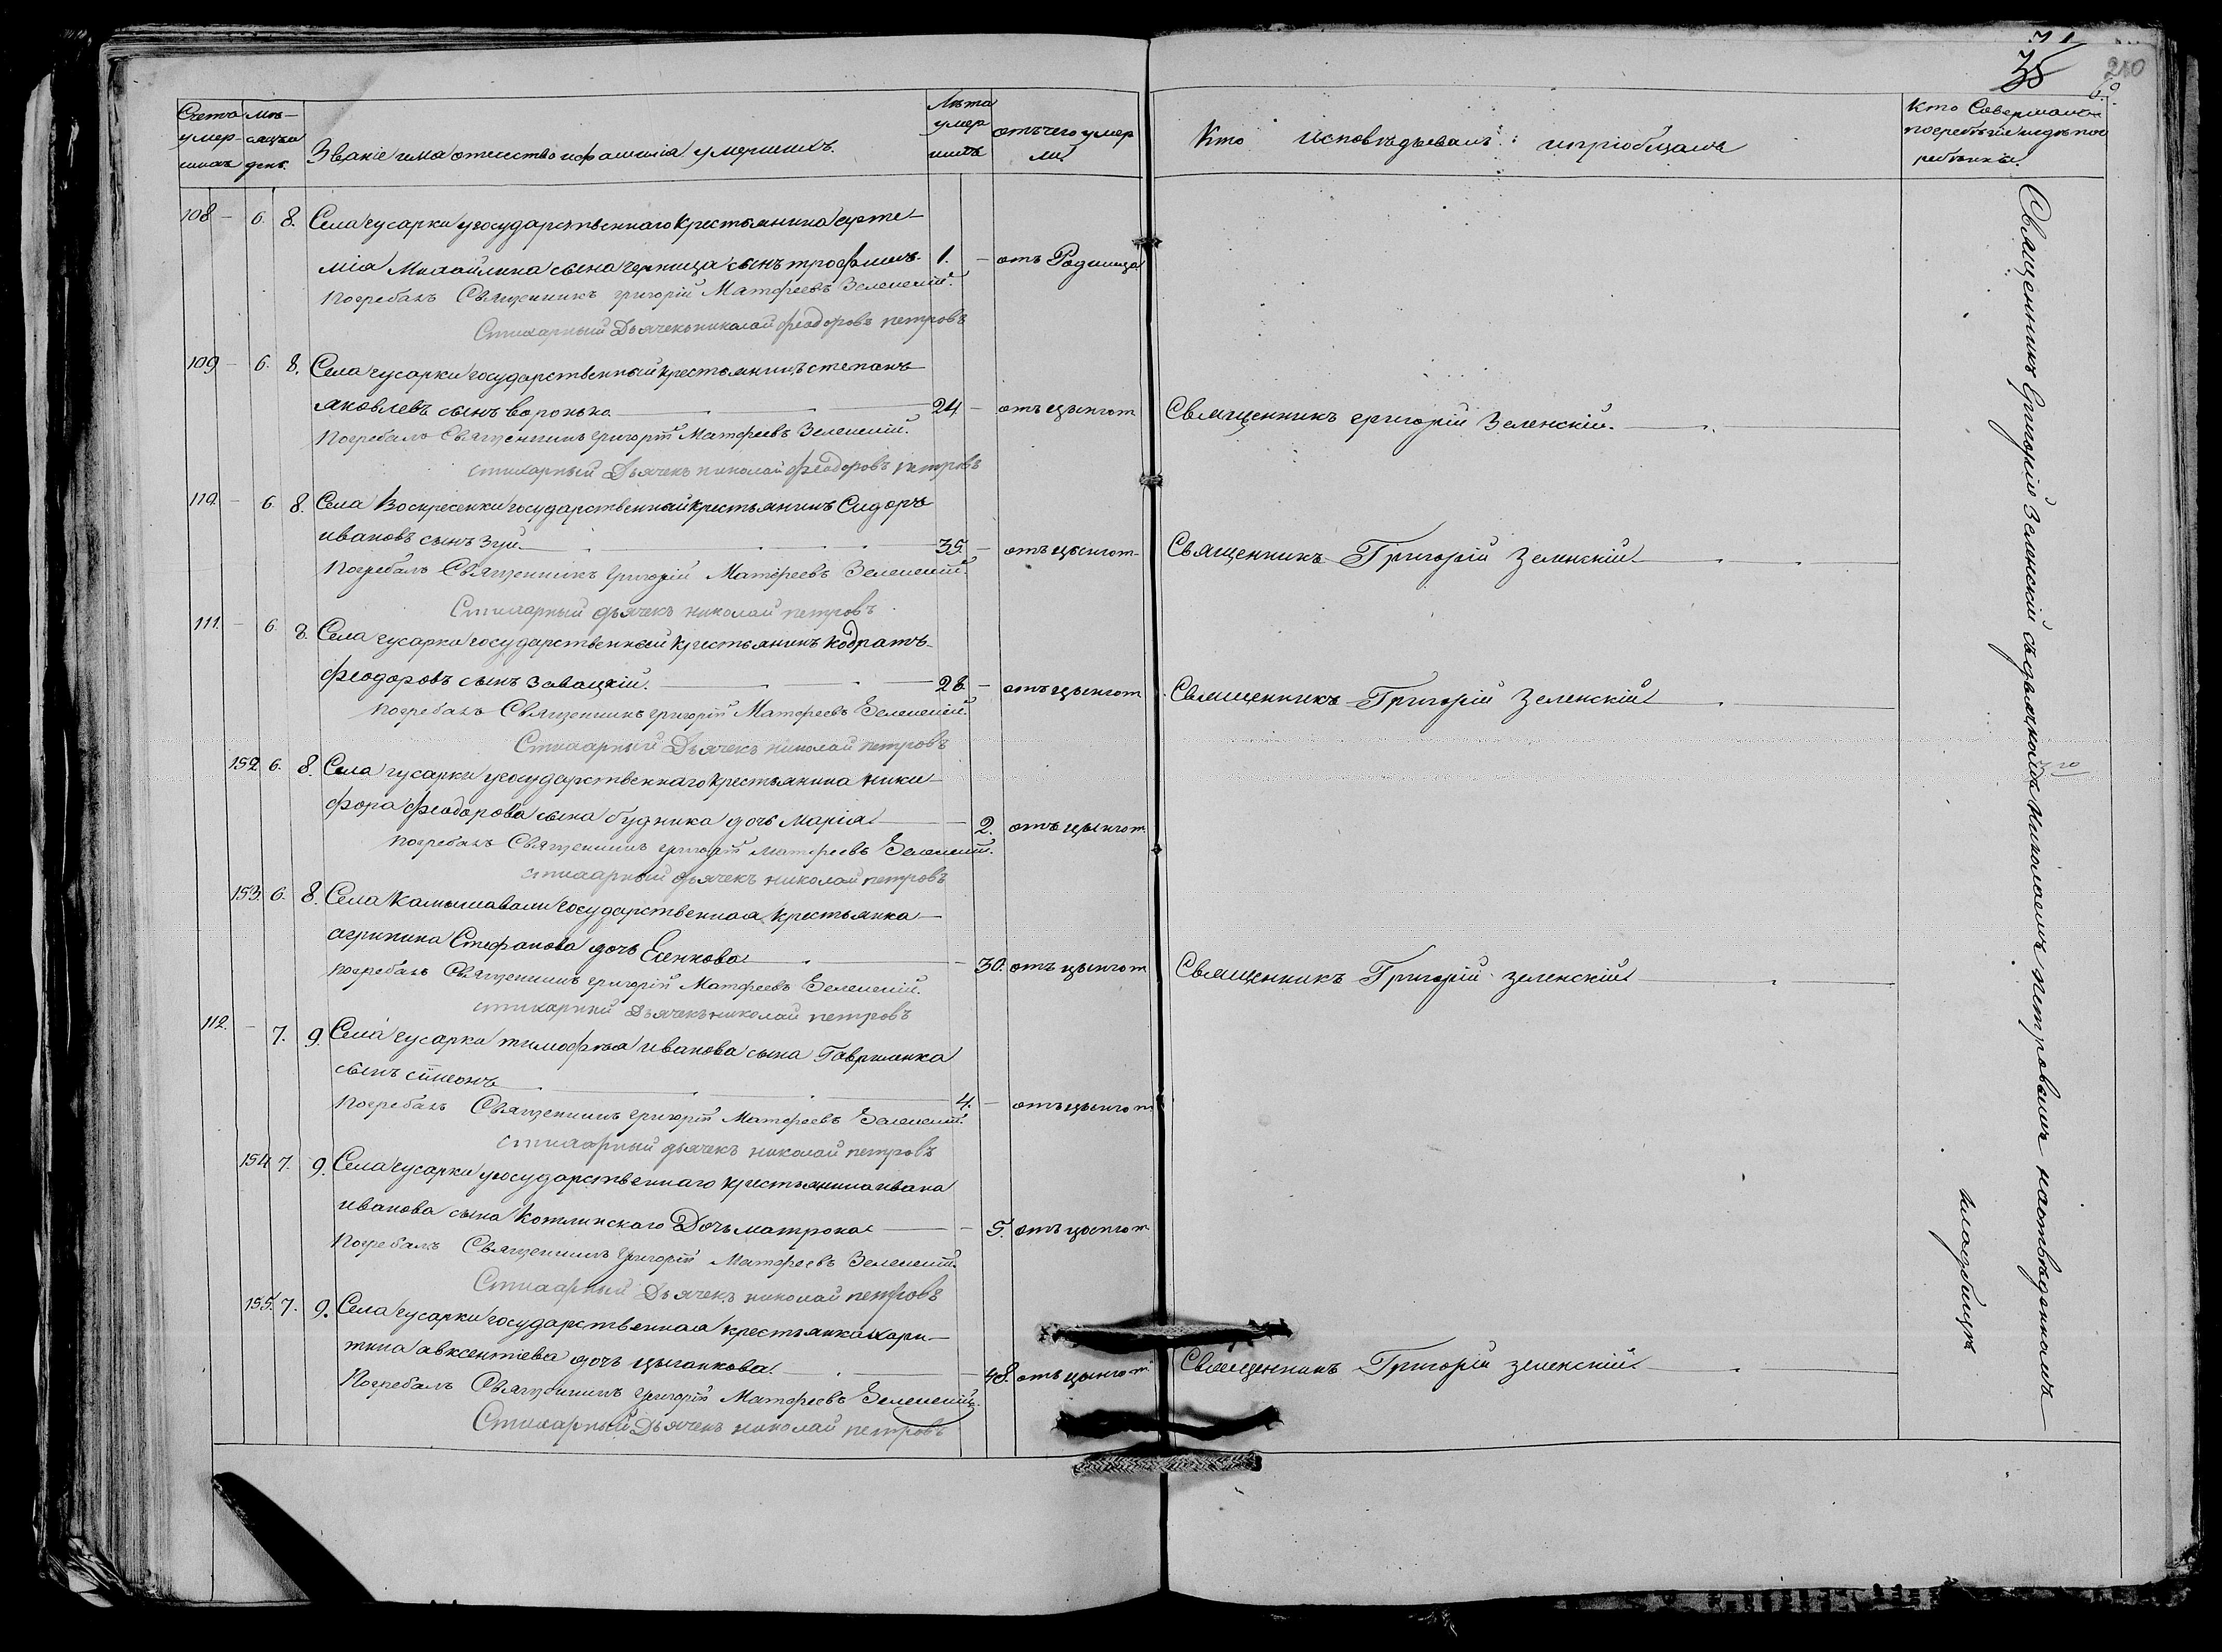 35
210
Счетъ умер-шихъ
Мѣ-сяцъ и день
Званіе имя отчество и фамилія умершихъ.
Лѣта умер шихъ
отъ чего умер ли
Кто исповѣдывалъ и пріобщалъ
Кто Совершалъ погребеніе и гдѣ погребены
108 – 6. 8. Села Гусарки у государственнаго крестьянина Арте-
мія Михайлина сына Черница сынъ Трофимъ. 1. – отъ Родимца
Погребалъ Священникъ Григорій Матфеевъ Зеленскій.
Стихарный Дьячекъ Николай Феодоровъ Петровъ
109 – 6. 8. Села Гусарки государственный крестьянинъ Степанъ
Яковлевъ сынъ Воронько 24 – отъ цынгот Священникъ Григорій Зеленскій.
Погребалъ Священникъ Григорій Матфеевъ Зеленскій.
стихарный Дьячекъ Николай Феодоровъ Петровъ
110. – 6. 8. Села Воскресенки государственный крестьянинъ Сидоръ
Ивановъ сынъ Зуй. 35. – отъ цынгот Священникъ Григорій Зеленскій
Погребалъ Священникъ Григорій Матфеевъ Зеленскій.
Стихарный дьячекъ Николай Петровъ
111. – 6. 8. Села Гусарки государственный крестьянинъ Кодратъ
Феодоровъ сынъ Завацкій. 28. – отъ цынгот Священникъ Григорій Зеленскій
Погребалъ Священникъ Григорій Матфеевъ Зеленскій.
Стихарный Дьячекъ Николай Петровъ
152 6. 8. Села Гусарки у государственнаго крестьянина Ники-
фора Феодорова сына Будника дочь Марія 2. отъ цынгот
Погребалъ Священникъ Григорій Матфеевъ Зеленскій.
стихарный дьячекъ Николай Петровъ
153. 6. 8. Села Камышавали государственная крестьянка
Агрипина Стефанова дочь Еенкова 30. отъ цынгот Священникъ Григорій Зеленскій
Погребалъ Священникъ Григорій Матфеевъ Зеленскій.
стихарный Дьячекъ Николай Петровъ
112. – 7. 9. Села Гусарки Тимофѣя Иванова сына Гавриленка
сынъ Симеонъ 4. – отъ цынгот
Погребалъ Священникъ Григорій Матфеевъ Зеленскій.
стихарный дьячекъ Николай Петровъ
154. 7. 9. Села Гусарки у государственнаго крестьянина Ивана
Иванова сына Котлинскаго Дочь Матрона 5. отъ цынгот
Погребалъ Священникъ Григорій Матфеевъ Зеленскій.
Стихарный Дьячекъ Николай Петровъ
155. 7. 9. Села Гусарки государственная крестьянка Хари-
тина Авксентіева дочь Цыганкова. 48. отъ цынгот Священникъ Григорій Зеленскій
Погребалъ Священникъ Григорій Матфеевъ Зеленскій.
Стихарный Дьячекъ Николай Петровъ
Священникъ Григорій Зеленскій съ дьячкомъ Николаемъ Петровымъ на отведенномъ
кладбищѣ